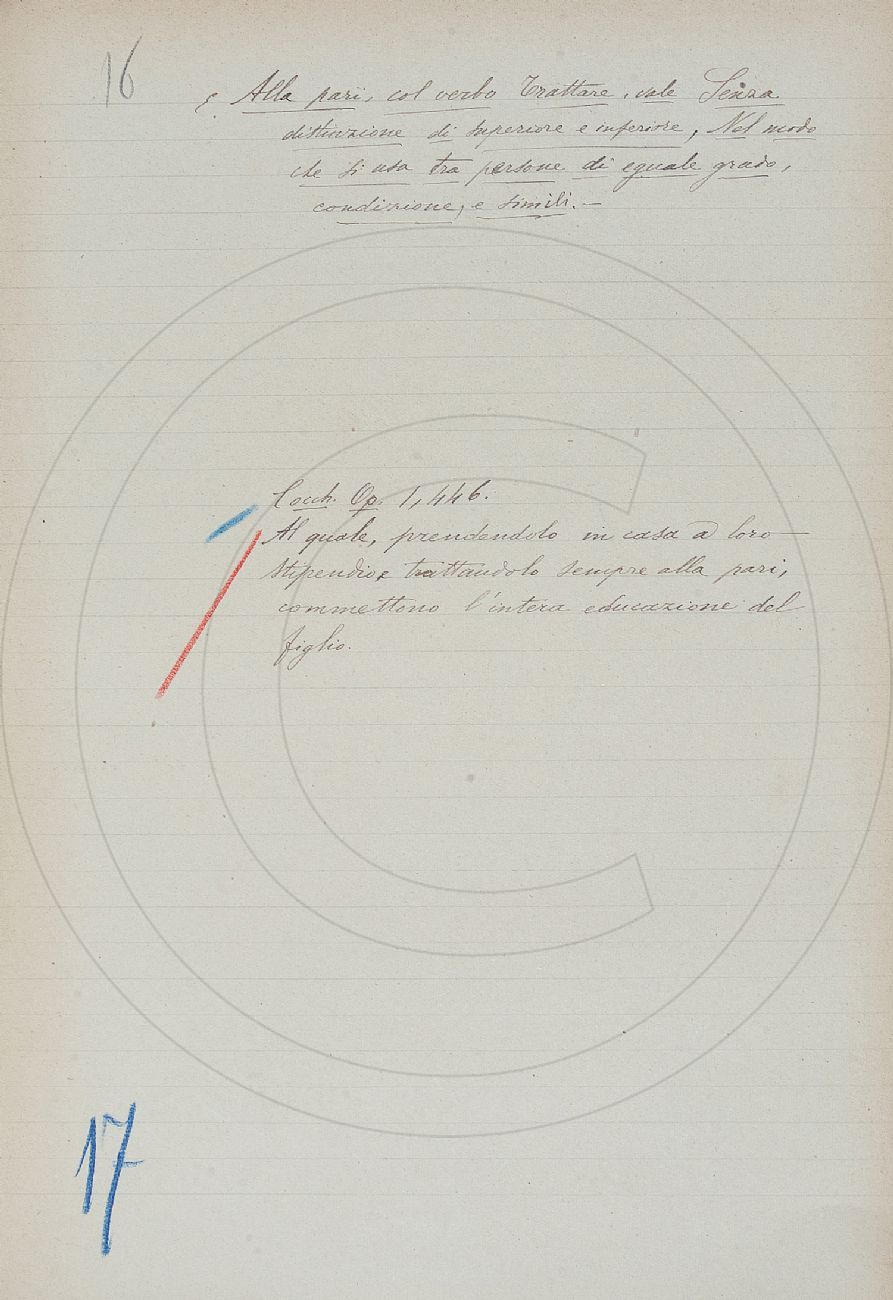 16
e Alla pari, col verbo Trattare, vale Senza
distinzione di superiore e inferiore, Nel modo
che si usa tra persone di eguale grado,
condizione, e simili. —
Cocch. Op. 1, 446.
Al quale, prendendolo in casa a loro
stipendio e trattandolo sempre alla pari,
commettono l'intera educazione del
figlio.
17